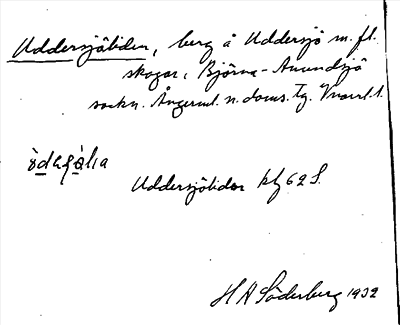 Uddersjöliden, berg å Uddersjö m. fl.
skogar, Björna-Anundsjö
sockn. Ångerml. n. doms. tg. Vnorrl. l.
Uddersjöliden kbg 62 S.
H A Söderberg 1932